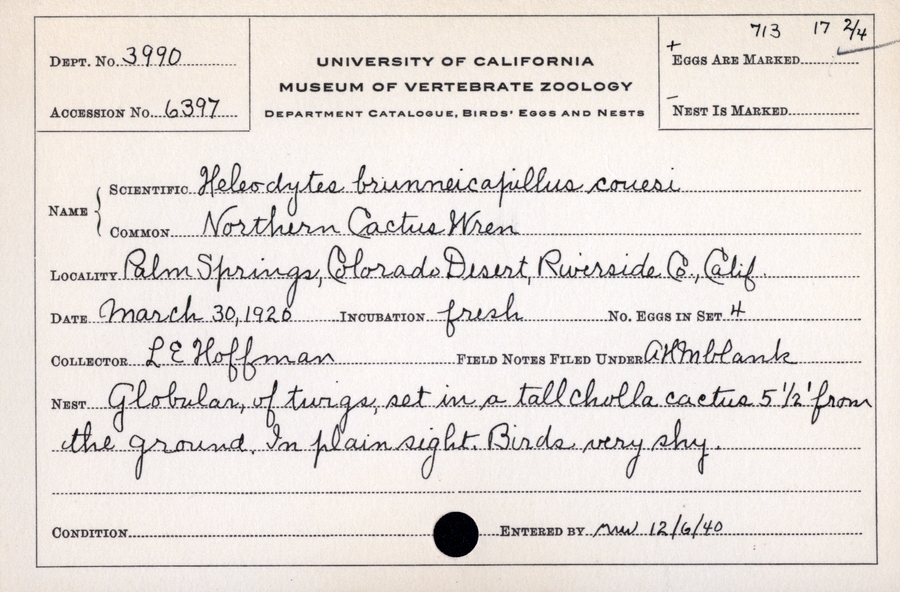 713 17 2/4
Dept. No. 3990
UNIVERSITY OF CALIFORNIA
+
Eggs Are Marked
MUSEUM OF VERTEBRATE ZOOLOGY
Accession No. 6397
Department Catalogue, Birds' Eggs and Nests
–
Nest Is Marked
Name
Scientific Heleodytes brunneicapillus couesi
Common Northern Cactus Wren
Locality Palm Springs, Colorado Desert, Riverside Co., Calif.
Date March 30, 1920 Incubation fresh No. Eggs in Set 4
Collector L E Hoffman Field Notes Filed Under
Nest Globular, of twigs, set in a tall cholla cactus 5 1/2' from
the ground. In plain sight. Birds very shy.
Condition Entered by 12/6/40